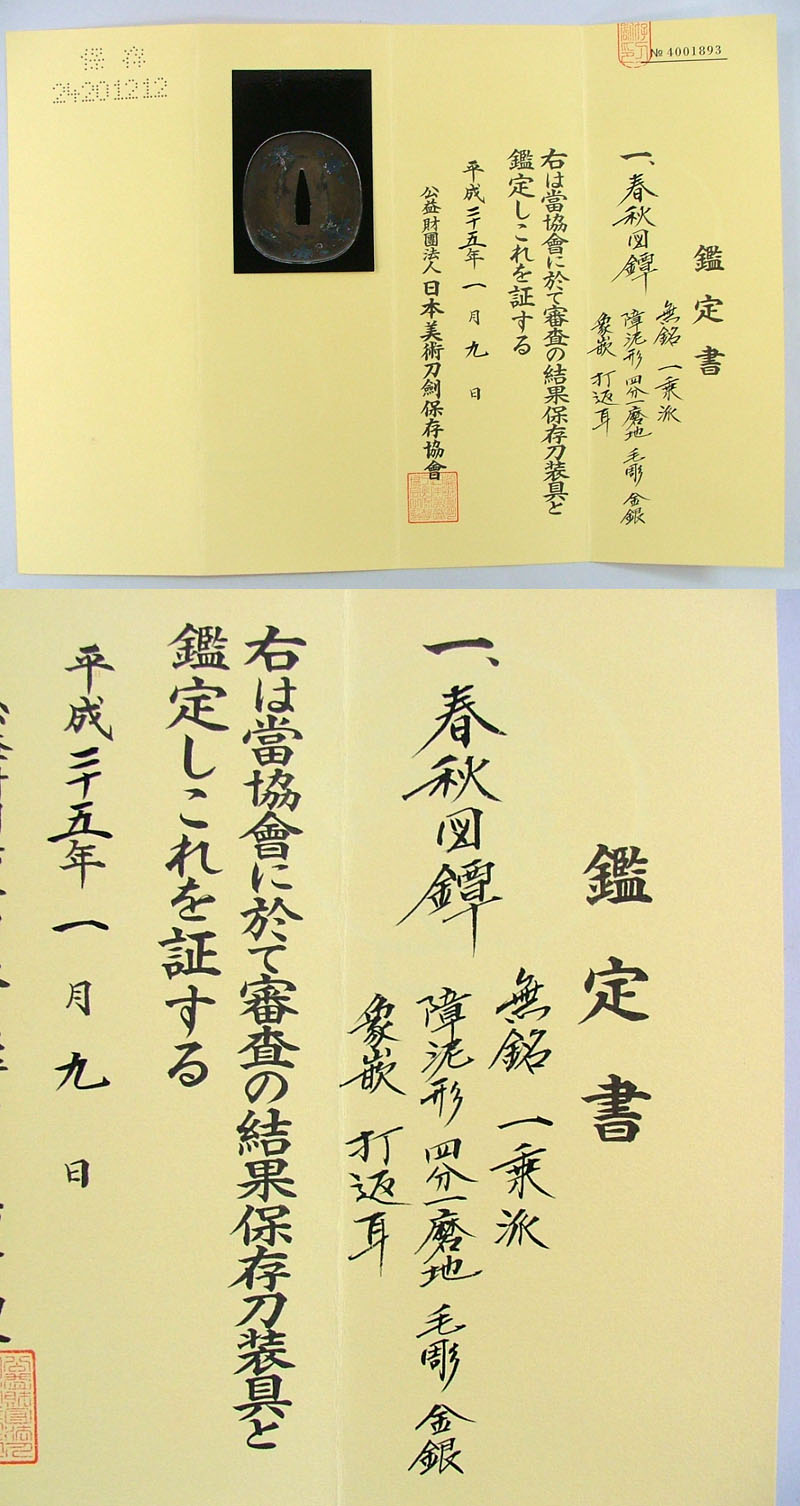 № 4001893
鑑定書
一、春秋図鐔
無銘 一乗派
障泥形 四分一磨地 毛彫 金銀
象嵌 打返耳
右は當協會に於て審査の結果保存刀装具と
鑑定しこれを証する
平成二十五年一月九日
公益財團法人日本美術刀剣保存協會
保存
24201212
鑑定書
一、春秋図鐔
無銘 一乗派
障泥形 四分一磨地 毛彫 金銀
象嵌 打返耳
右は當協會に於て審査の結果保存刀装具と
鑑定しこれを証する
平成二十五年一月九日